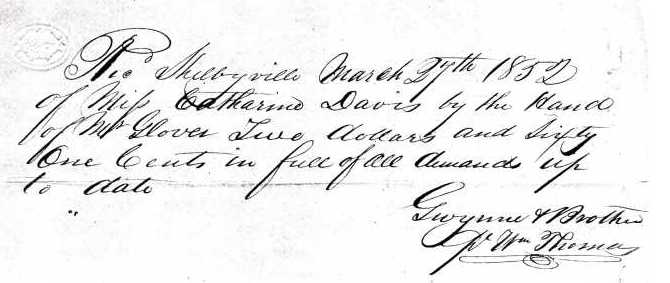 Recd Shelbyville March 27th 1852
of Miss Catharine Davis by the Hand
of Mr Glover Two dollars and Sixty
One Cents in full of all demands up
to date
"
Gwynne & Brother
pr Wm Thomas